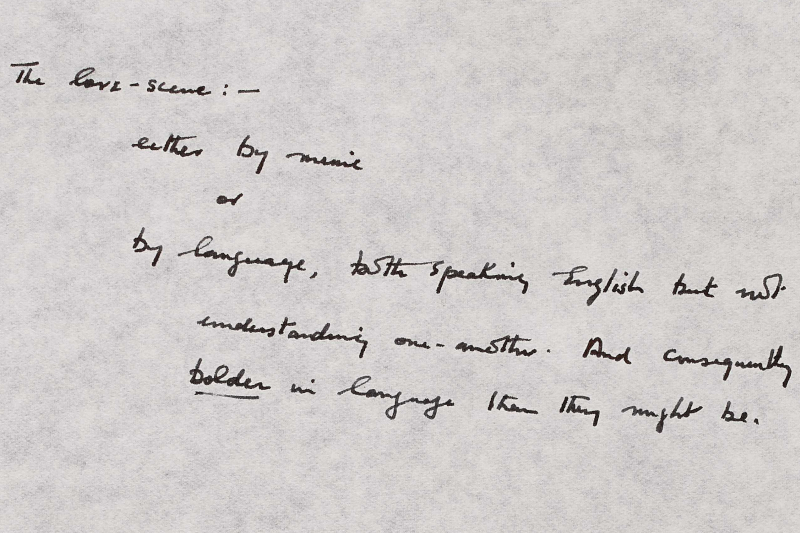 The love-scene :—
either by mime
or
by language, both speaking English but not
understanding one-another. And consequently
bolder in language than they might be.